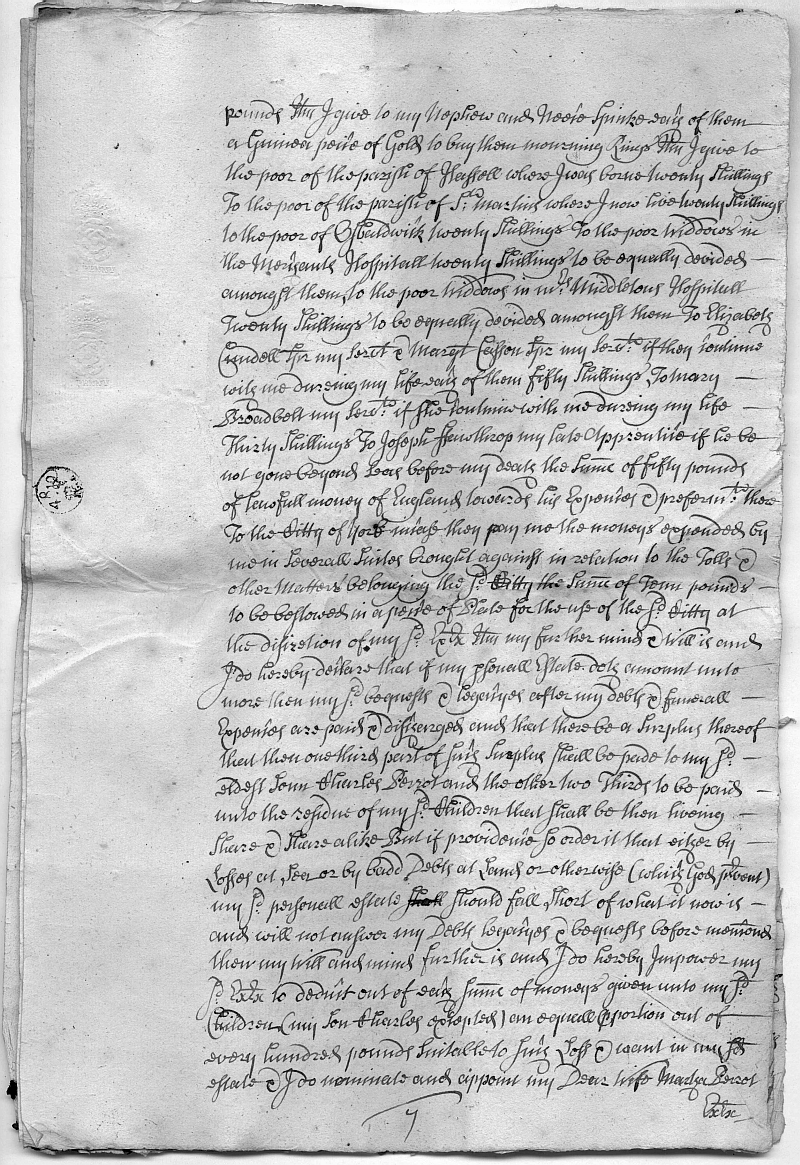 pounds Itm I give to my Nephew and Neece Spinke each of them
a Guinea peice of Gold to buy them mourning Rings Itm I give to
the poor of the parish of where I was borne twenty Shillings
To the poor of the parish of St. Martins where I now live twenty Shillings
to the poor of Osbaldwick twenty Shillings To the poor widdows in
the Merchants Hospitall twenty Shillings to be equally devided
amongst them, to the poor widdows in mrs Middletons Hospitall
Twenty Shillings to be equally devided amongst them To Elizabeth
my Servt & Margt my Servt. if they continue
with me dureing my life each of them fifty Shillings, To Mary
Broadbelt my Servt. if she continue with me dureing my life
Thirty Shillings To Joseph my late Apprentice if he be
not gone beyond Seas before my death the Summe of fifty pounds
of lawfull money of England towards his Expences & preferm.t there
To the Citty of York incase they pay me the moneys expended by
me in Severall Suites brought against in relation to the Tolls &
other Matters belonging the sd. Citty the Summe of Tenn pounds
to be bestowed in a peice of Plate for the use of the sd. Citty at
the discretion of my sd. Exx Itm my further mind & Will is and
I do hereby declare that if my psonall Estate doth amount unto
more then my sd. bequests & legacyes after my debts & funerall
Expences are paid & discharged and that there be a Surplus thereof
that then one third part of such Surplus shall be paide to my sd.
eldest Sonn Charles Perrot and the other two Thirds to be paid
unto the residue of my sd. Children that shall be then liveing
Share & Share alike But if providence so order it that either by
Losses at Sea or by badd Debts at Land or otherwise (which God prvent)
my sd. personall estate shall should fall short of what it now is
and will not answer my Debts legacyes & bequests before menconed
then my Will and mind further is and I do hereby Impower my
sd. Exx to deduct out of each Summe of moneys given unto my sd.
Children (my Son Charles excepted) an equall pportion out of
every hundred pounds Suitable to such Loss & want in my sd
estate & I do nominate and appoint my Dear Wife Martha Perrot
Exx
7